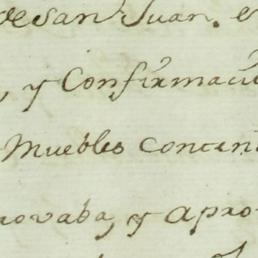 de San Juan. e
, y Confirmaci
Muebles conten
rovaba, y apro